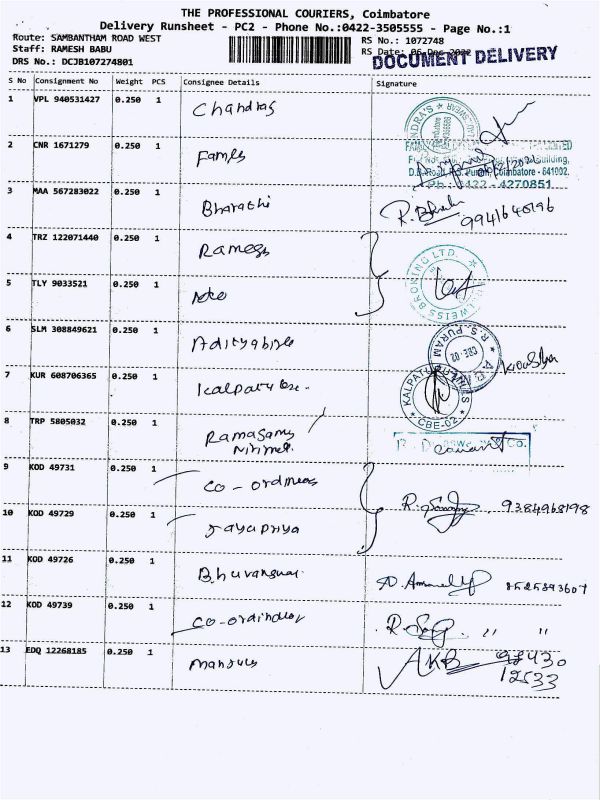 THE PROFESSIONAL COURIERS, Coimbatore
Delivery Runsheet - PC2 - Phone No.:0422-3505555 - Page No.:1
Route: SAMBANTHAM ROAD WEST
RS No.: 1072748
Staff: RAMESH BABU
RS Date: 06-Dec-2022
DRS No.: DCJB107274801
DOCUMENT DELIVERY
S No Consignment No Weight PCS Consignee Details Signature
1 VPL 940531427 0.250 1 Chandras
2 CNR 1671279 0.250 1 Famels
Building,
D.B. Road, R.S. Puram, Coimbatore - 641002.
Ph : 0422 - 4270851
3 MAA 567283022 0.250 1 Bharathi
9941640196
4 TRZ 122071440 0.250 1 Ramesh
5 TLY 9033521 0.250 1
BROKING LTD.
6 SLM 308849621 0.250 1 Adityabirla
R.S. PURAM
CBE-02
7 KUR 608706365 0.250 1 Kalpatu
KALPATU
CBE-02
8 TRP 5805032 0.250 1 Ramasamy
& Co.
9 KOD 49731 0.250 1 CO-
9384968198
10 KOD 49729 0.250 1 Jayapriya
11 KOD 49726 0.250 1
8525893607
12 KOD 49739 0.250 1 CO-
" "
13 EDQ 12268185 0.250 1 Manjula
AKB 98430
12533